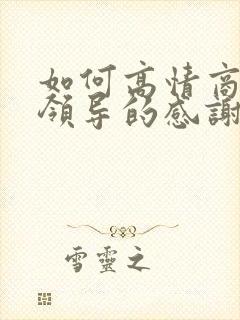 如何高情商
领导的感謝
雪靈之